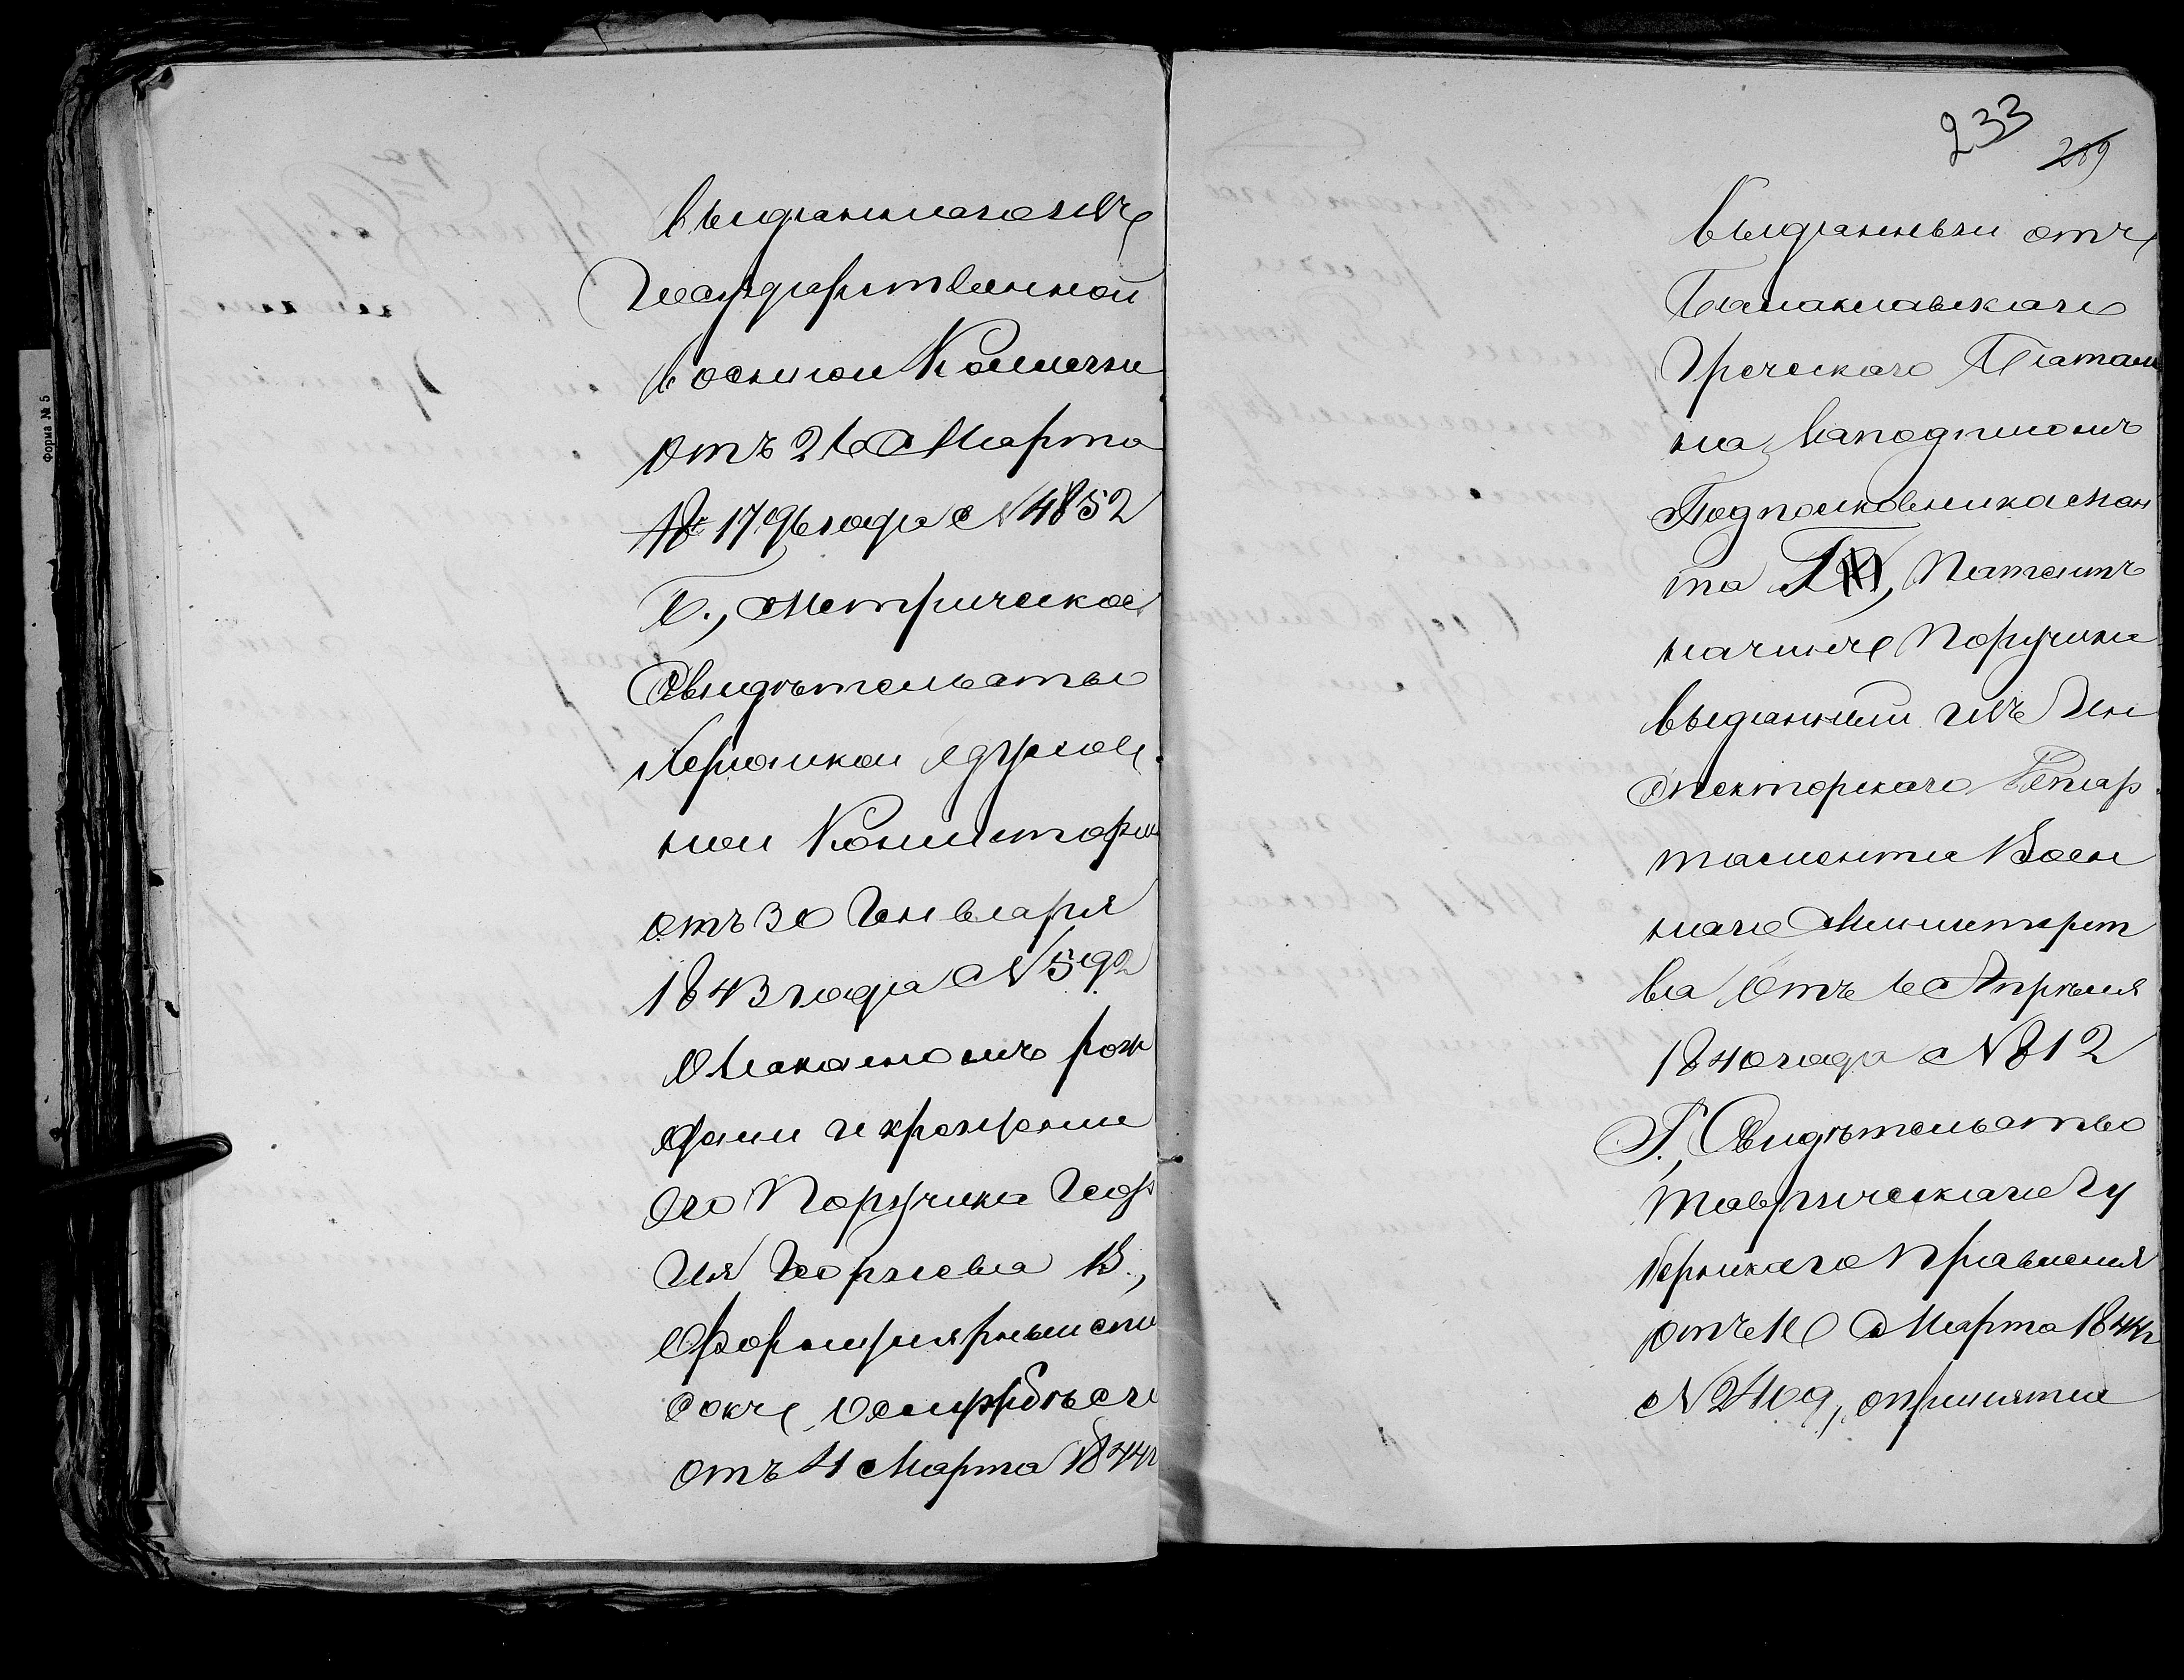 выданнаго изъ
Государственной
военной Коллегии
отъ 26 Марта
1796 года № 4852
Б., Метрическое
Свидѣтельство
Херсонкой духов
ной Конситории
отъ 30 Генваря
1843 года № 592
о законномъ рож
дении и крещении
его Поручика Геор
гия Георгиева В.,
о формулярный спи
сокъ о службѣ его
отъ 4 Марта 1844 г
233
289
выданный отъ
Балаклавскаго
Греческаго Баталио
на за подписомъ
Подполковника Ман
то Г., Патентъ
на чинъ Поручика
выданный изъ Ин
спекторскаго Депар
тамента Воен
наго Министерст
ва отъ 6 Апрѣля
1840 года № 812
Г., Свидѣтельство
Таврическаго Гу
бернскаго Правления
отъ 11 Марта 1844 г
№ 2409, о принятие
Форма № 5